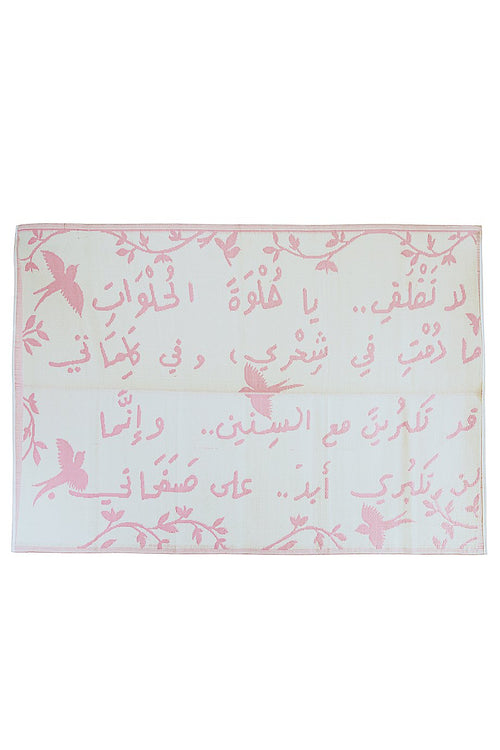 لا تَقْلَقي.. يا حُلْوَةَ الحُلْوَاتِ
ما دُمْتِ في شِعْري، وفي كَلِمَاتي
قد تَكْبُرِينَ مع السِنين.. وإنَّما
لن تَكْبُري أبدً.. على صَفَحَاتي